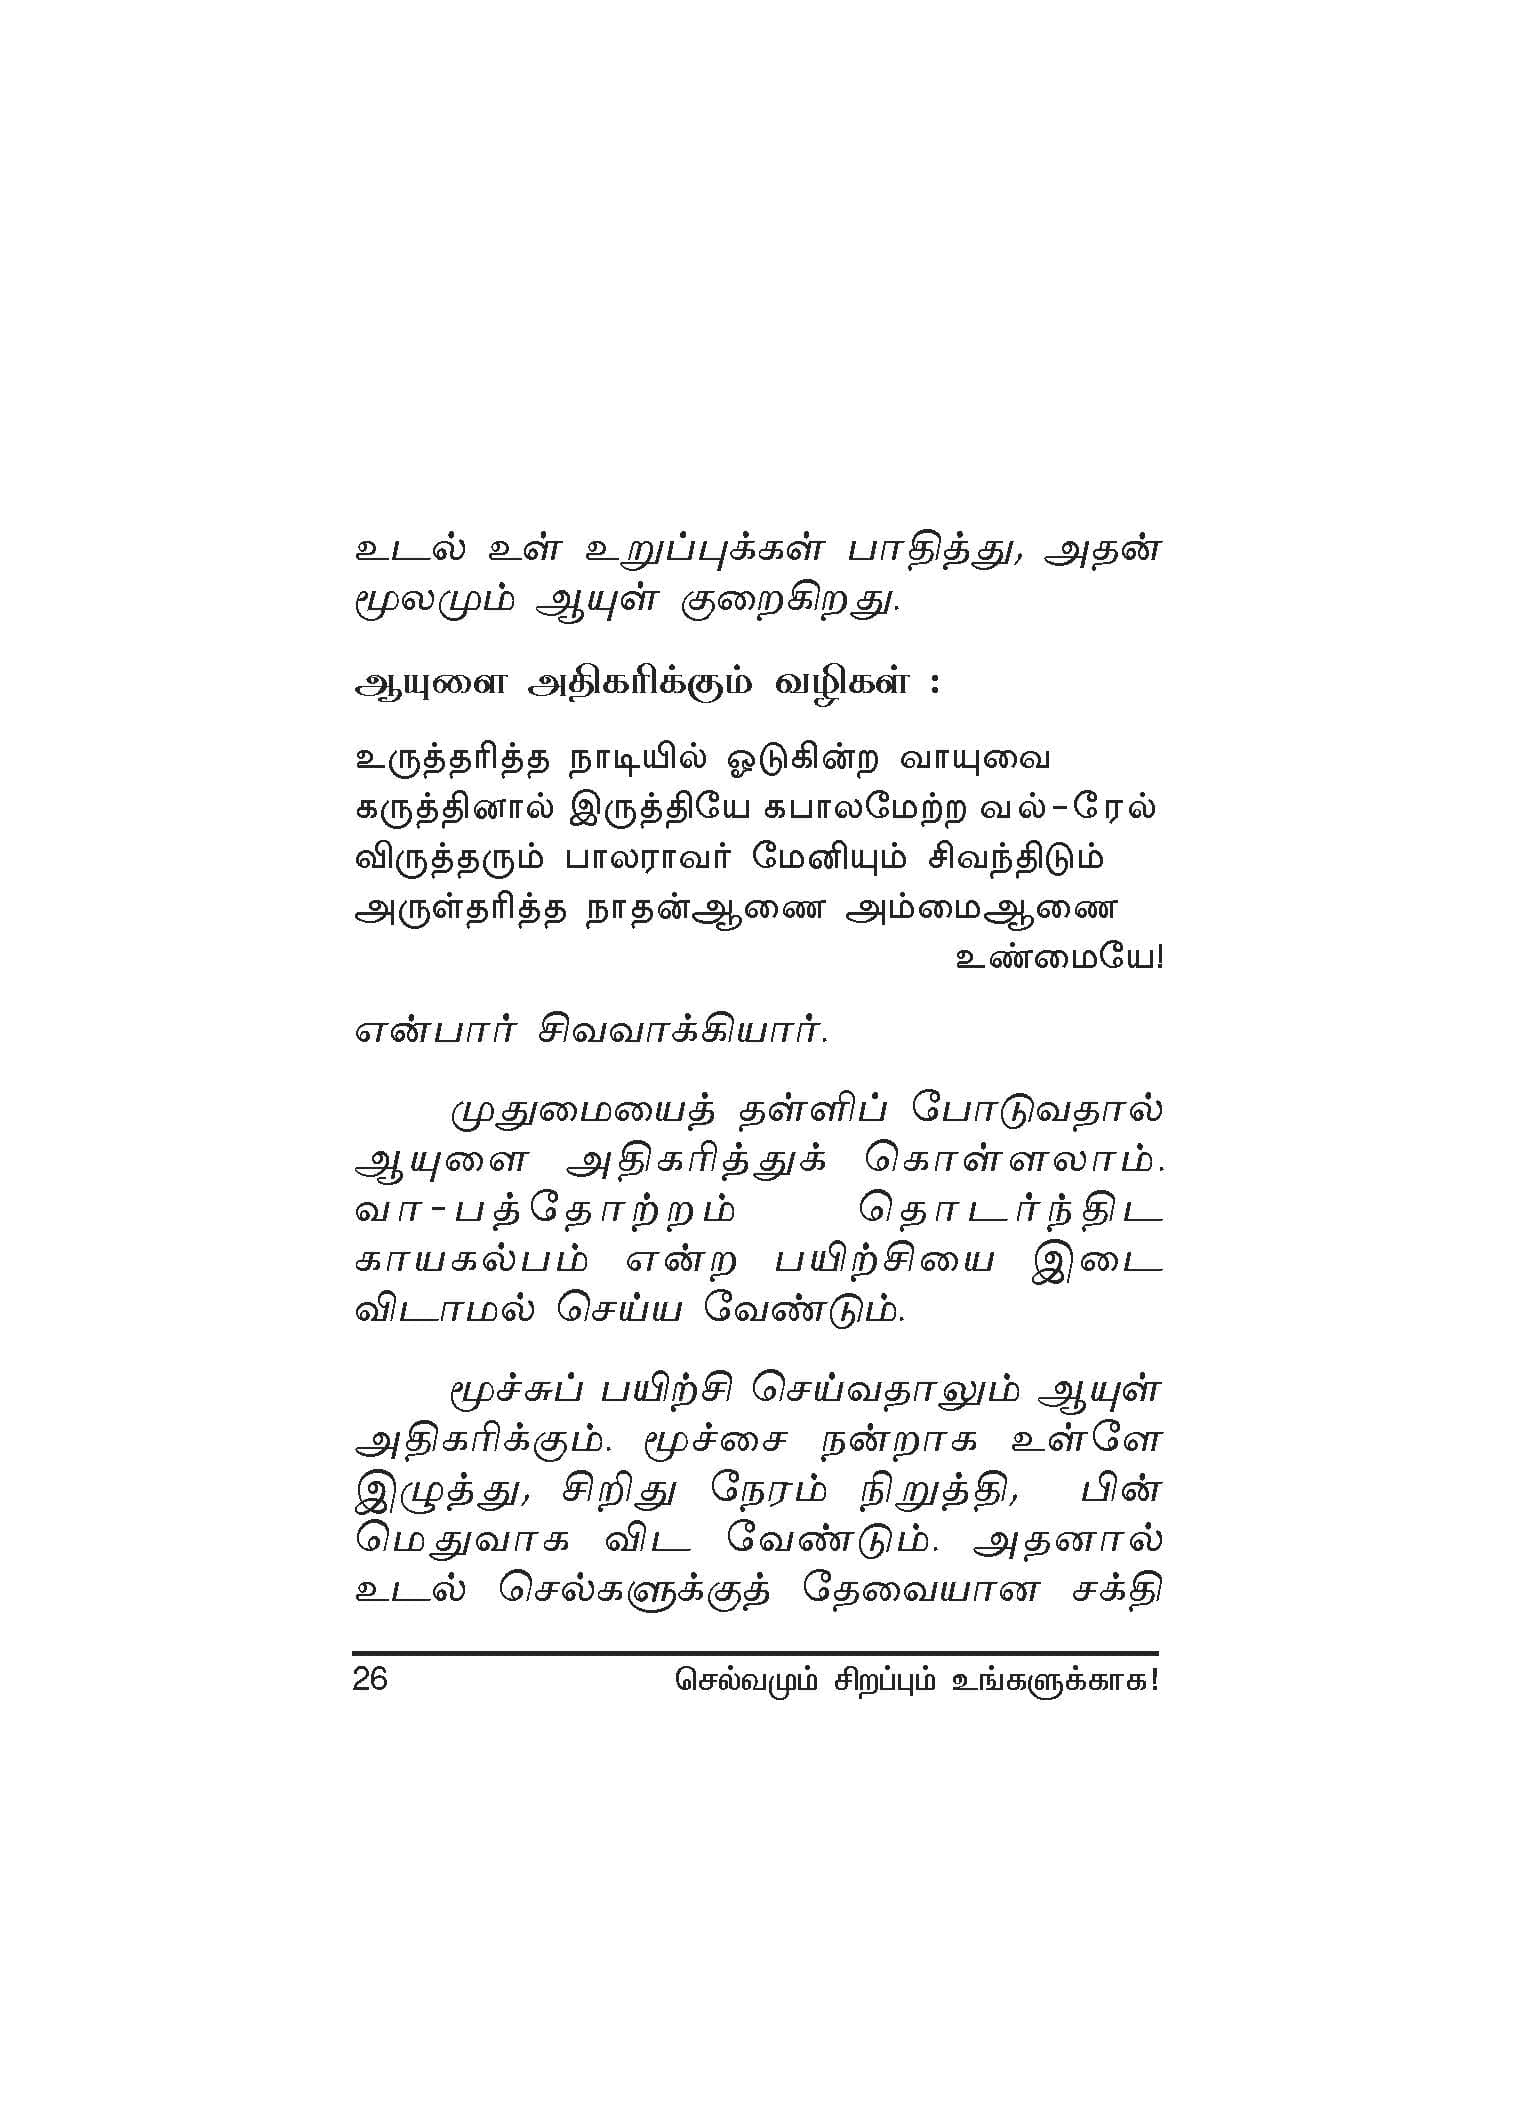 உடல் உள் உறுப்புக்கள் பாதித்து, அதன்
மூலமும் ஆயுள் குறைகிறது.
ஆயுளை அதிகரிக்கும் வழிகள் :
உருத்தரித்த நாடியில் ஓடுகின்ற வாயுவை
கருத்தினால் இருத்தியே கபாலமேற்ற வல்-ரேல்
விருத்தரும் பாலராவர் மேனியும் சிவந்திடும்
அருள்தரித்த நாதன்ஆணை அம்மைஆணை
உண்மையே!
என்பார் சிவவாக்கியார்.
முதுமையைத் தள்ளிப் போடுவதால்
ஆயுளை அதிகரித்துக் கொள்ளலாம்.
வா-பத்தோற்றம் தொடர்ந்திட
காயகல்பம் என்ற பயிற்சியை இடை
விடாமல் செய்ய வேண்டும்.
மூச்சுப் பயிற்சி செய்வதாலும் ஆயுள்
அதிகரிக்கும். மூச்சை நன்றாக உள்ளே
இழுத்து, சிறிது நேரம் நிறுத்தி, பின்
மெதுவாக விட வேண்டும். அதனால்
உடல் செல்களுக்குத் தேவையான சக்தி
26 செல்வமும் சிறப்பும் உங்களுக்காக!